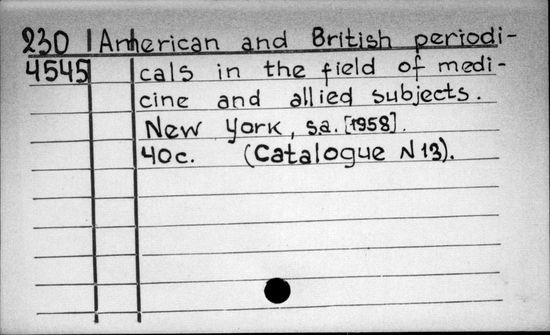 230 American and British periodi-
4545 cals in the field of medi-
cine and allied subjects.
New York, sa. [1958].
40c. (Catalogue N 13).